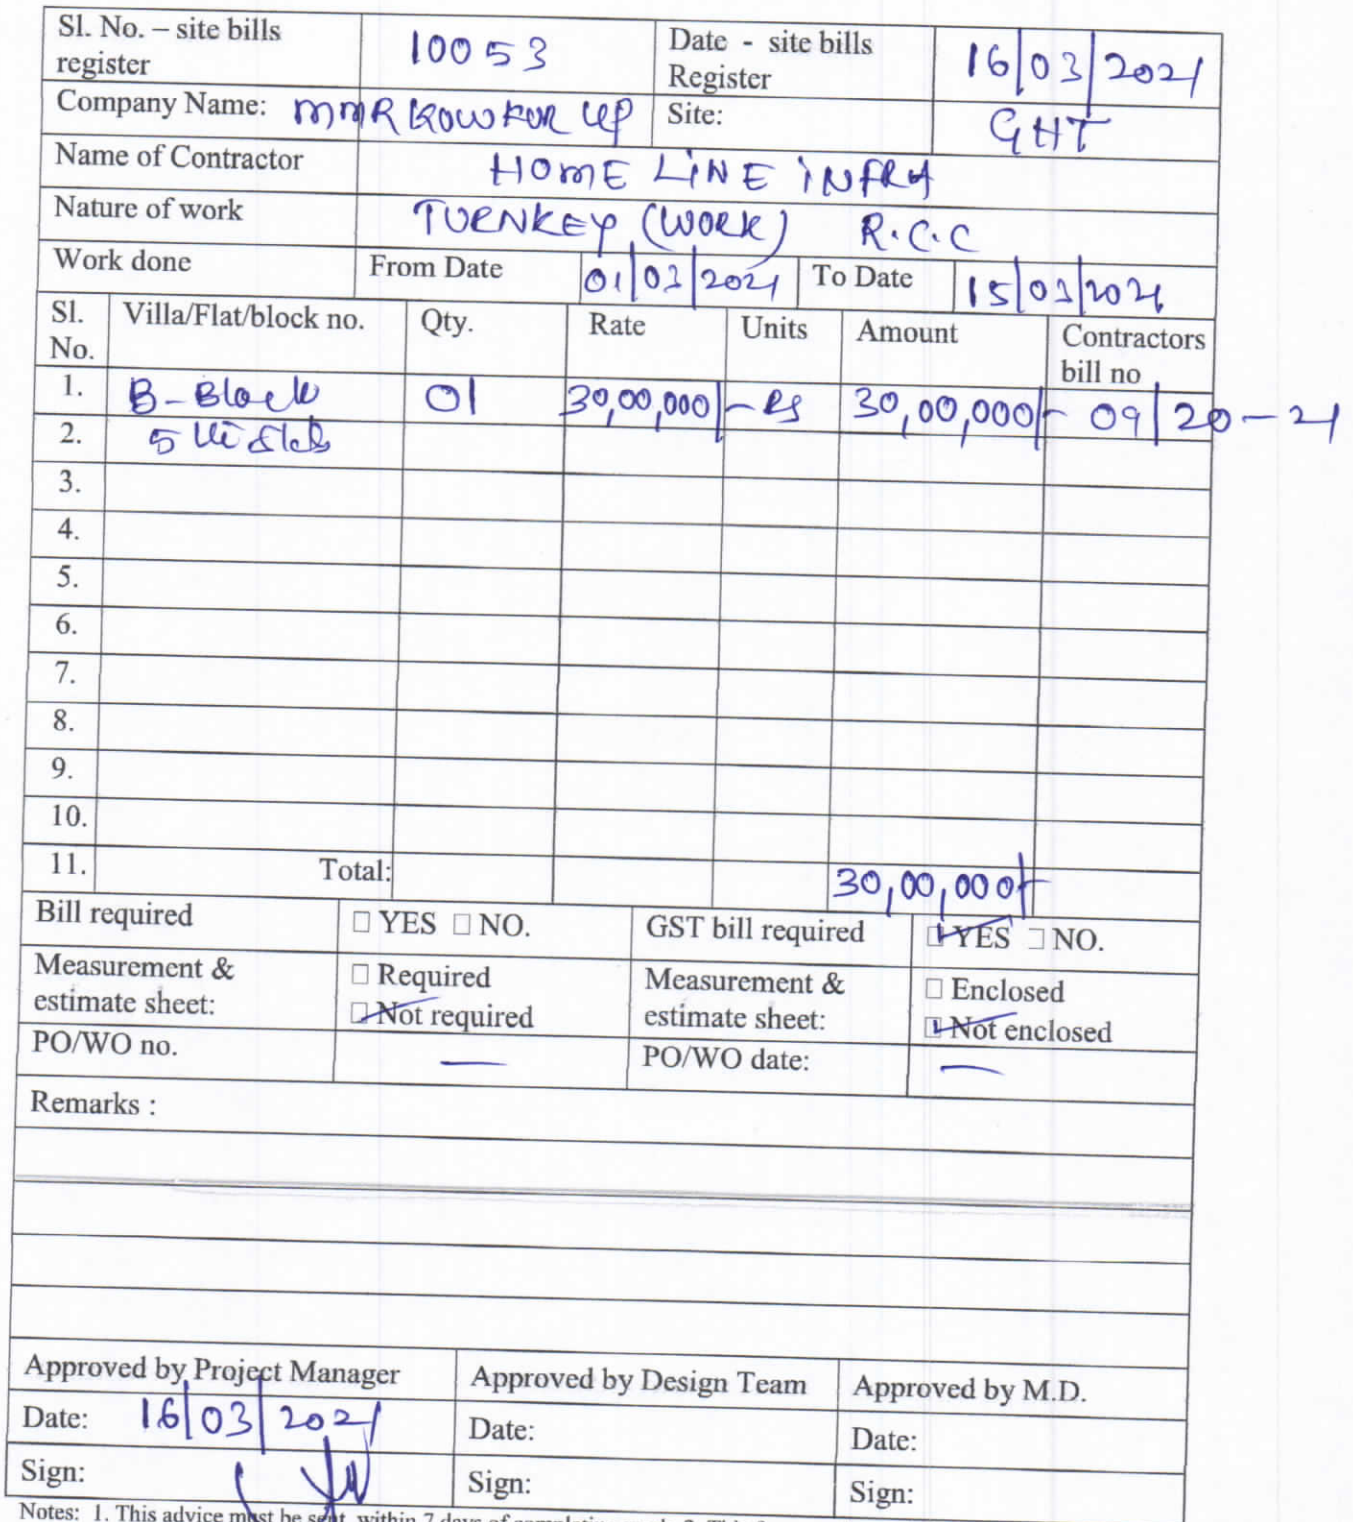 Sl. No. – site bills register 10053 Date - site bills Register 16/03/2021
Company Name: MMR KOWKUR LLP Site: GHT
Name of Contractor HOME LINE INFRA
Nature of work TURNKEY (WORK) R.C.C
Work done From Date 01/03/2021 To Date 15/03/2021
Sl. No. Villa/Flat/block no. Qty. Rate Units Amount Contractors bill no
1. B-Block 01 30,00,000/- Rs 30,00,000/- 09/20-21
2. 5th slab
3.
4.
5.
6.
7.
8.
9.
10.
11. Total: 30,00,000/-
Bill required □ YES □ NO. GST bill required ☑ YES □ NO.
Measurement & estimate sheet: □ Required ☑ Not required Measurement & estimate sheet: □ Enclosed ☑ Not enclosed
PO/WO no. — PO/WO date: —
Remarks :
Approved by Project Manager Approved by Design Team Approved by M.D.
Date: 16/03/2021 Date: Date:
Sign: Sign: Sign:
Notes: 1. This advice must be sent within 7 days of